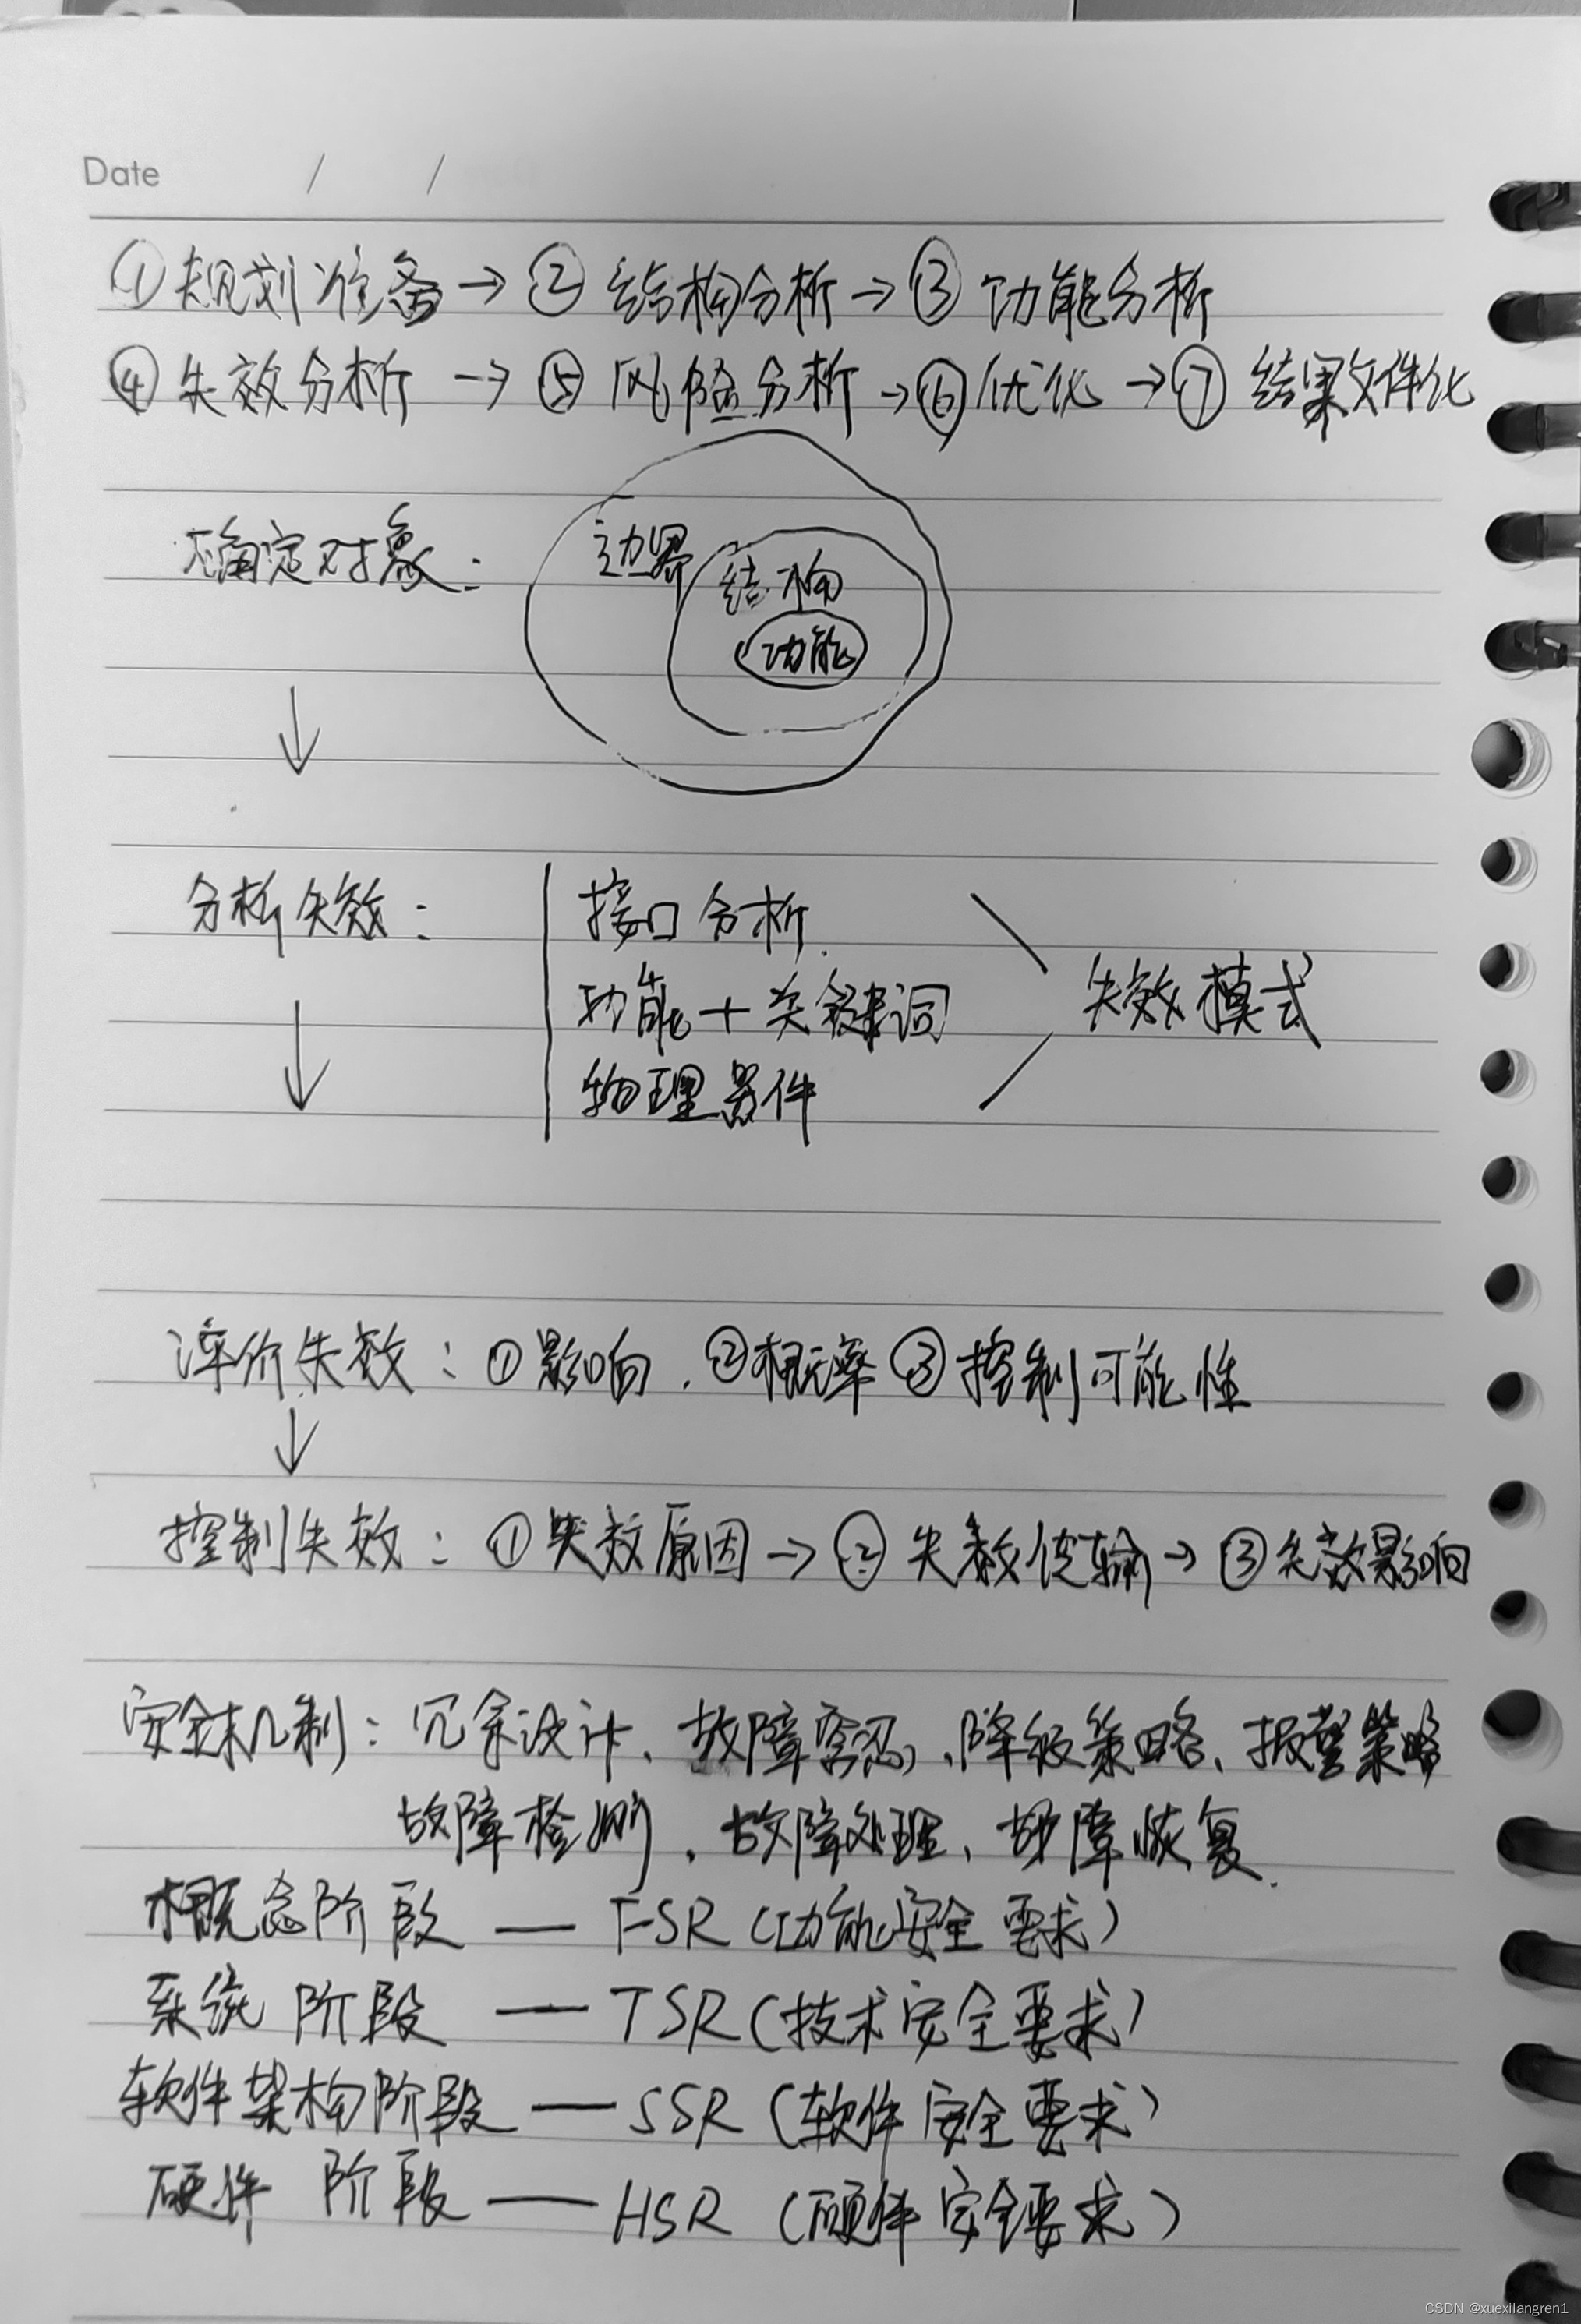 Date / /
①规划准备→②结构分析→③功能分析
④失效分析→⑤风险分析→⑥优化→⑦结果文件化
确定对象:
边界
结构
功能
↓
分析失效:
接口分析
功能+关键词
物理器件
失效模式
↓
评价失效:①影响.②概率③控制可能性
↓
控制失效:①失效原因→②失效传输→③失效影响
安全机制:冗余设计、故障容忍、降级策略、报警策略
故障检测、故障处理、故障恢复.
概念阶段——FSR(功能安全要求)
系统阶段——TSR(技术安全要求)
软件架构阶段——SSR(软件安全要求)
硬件阶段——HSR(硬件安全要求)
CSDN @xuexilangren1